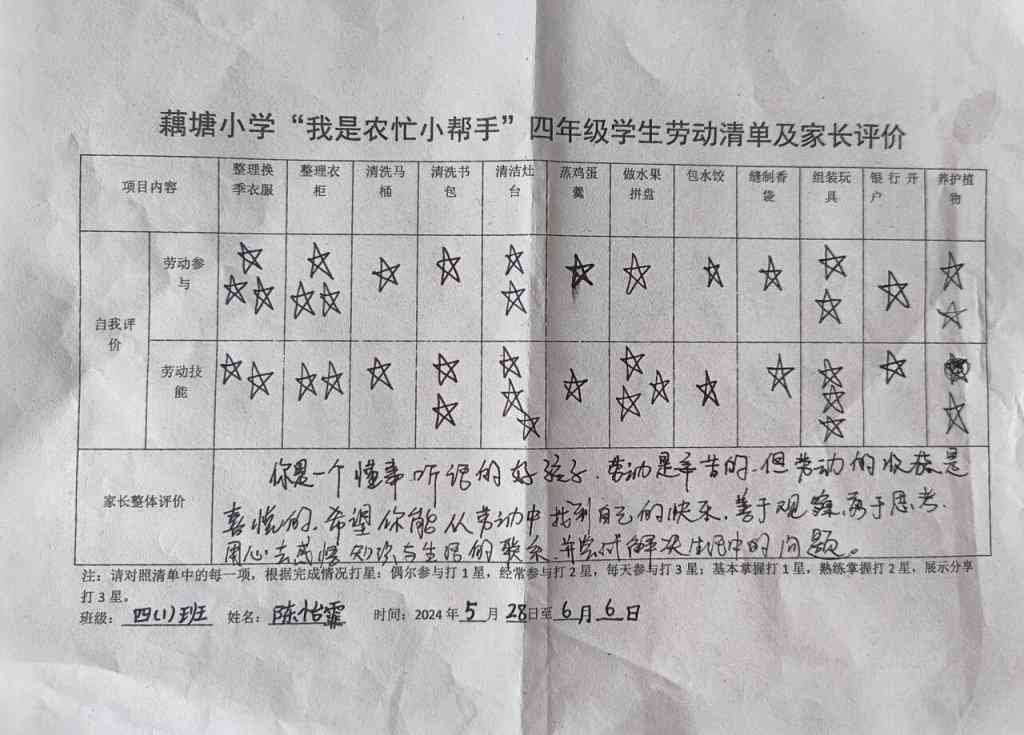 藕塘小学“我是农忙小帮手”四年级学生劳动清单及家长评价
项目内容 整理换季衣服 整理衣柜 清洗马桶 清洗书包 清洁灶台 蒸鸡蛋羹 做水果拼盘 包水饺 缝制香袋 组装玩具 银行开户 养护植物
自我评价
劳动参与
劳动技能
家长整体评价
你是一个懂事听话的好孩子.劳动是辛苦的.但劳动的收获是
喜悦的.希望你能从劳动中找到自己的快乐.善于观察,勇于思考.
用心去感悟知识与生活的联系,并尝试解决生活中的问题。
注:请对照清单中的每一项,根据完成情况打星:偶尔参与打1星,经常参与打2星,每天参与打3星;基本掌握打1星,熟练掌握打2星,展示分享
打3星。
班级:四(1)班 姓名:陈怡霏 时间:2024年5月28日至6月6日